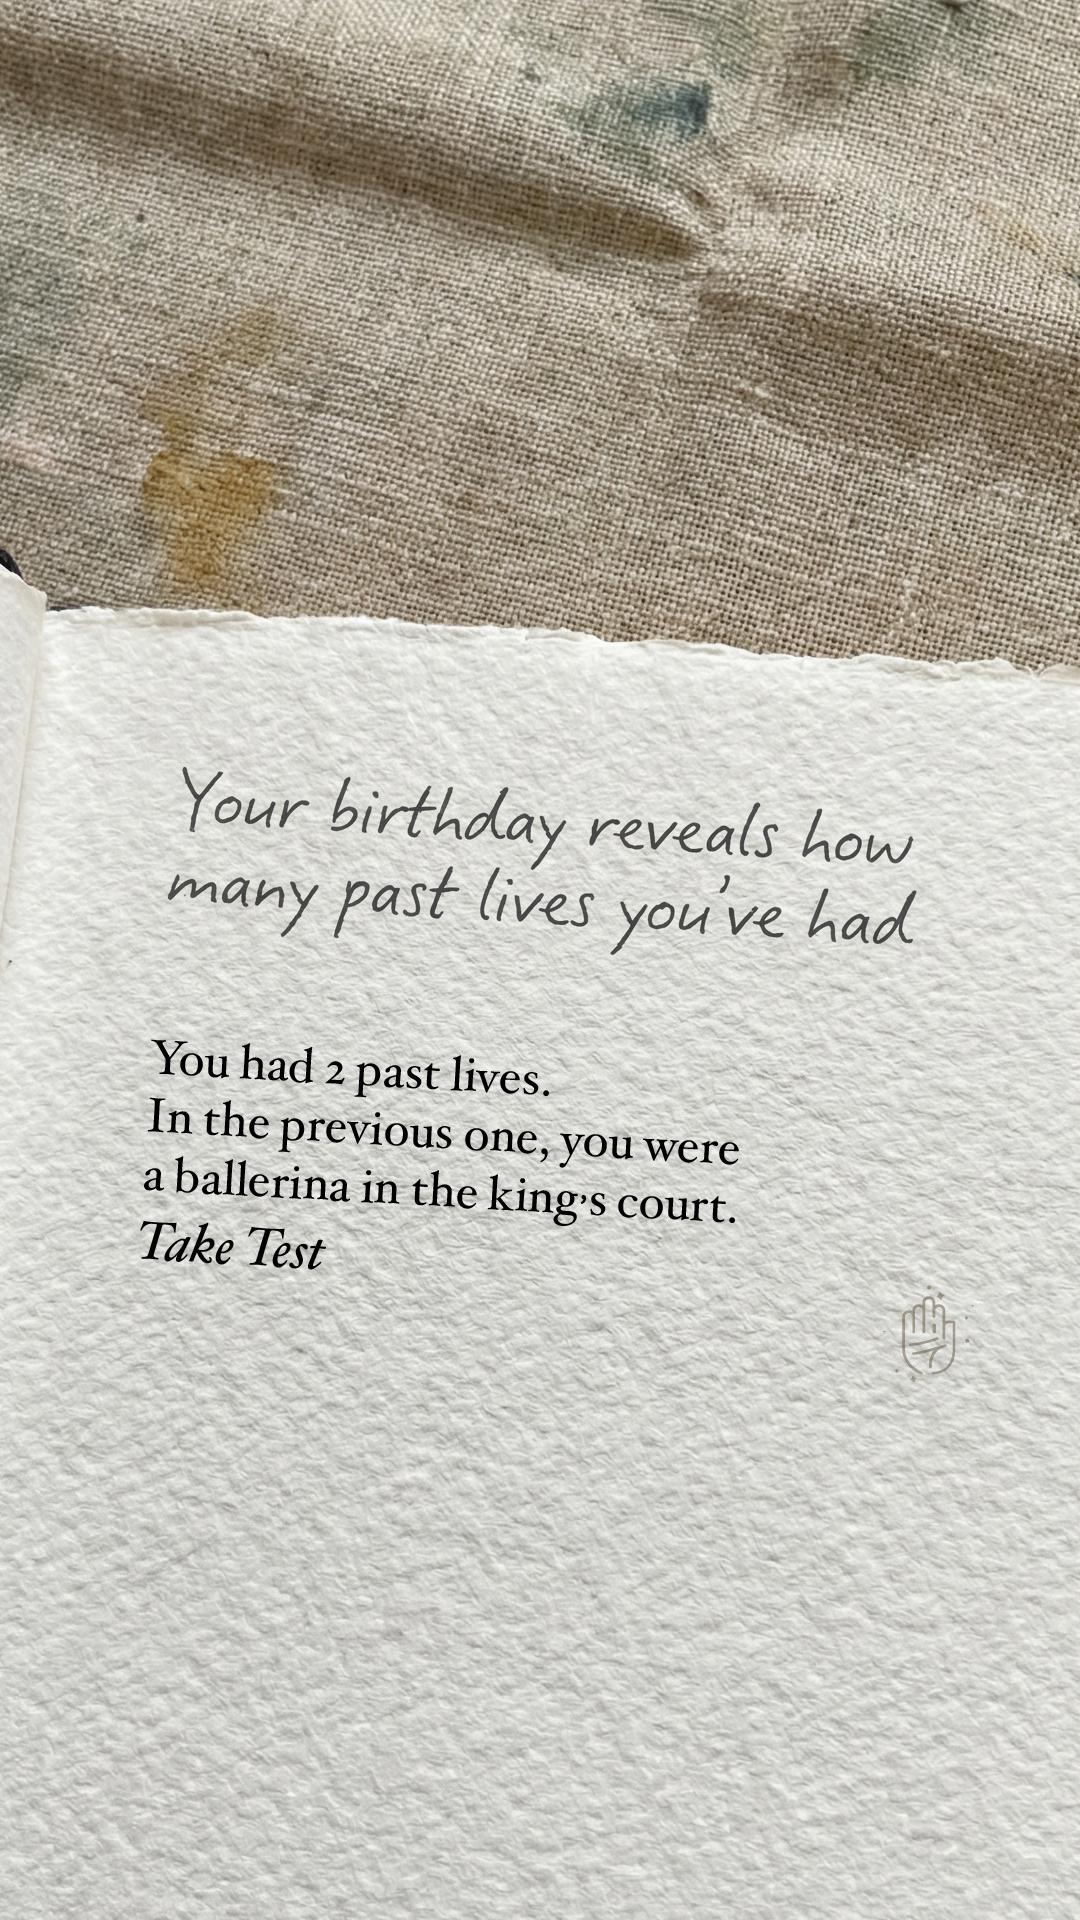 Your birthday reveals how
many past lives you've had
You had 2 past lives.
In the previous one, you were
a ballerina in the king's court.
Take Test